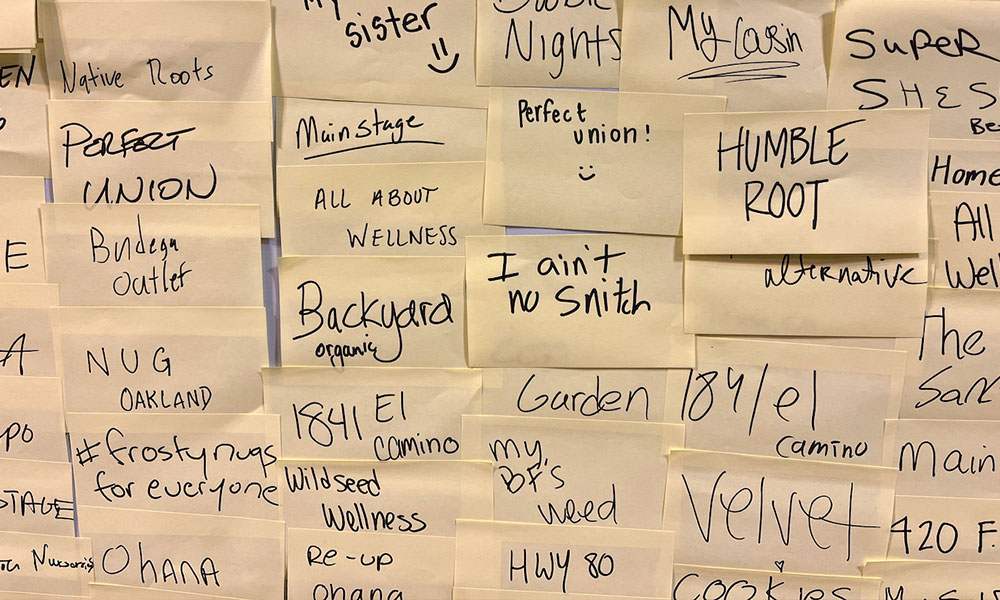 EN
Native Roots
PERFECT
UNION
Budega
outlet
NUG
OAKLAND
#frostynugs
for everyone
Ohana
My
sister
Mainstage
ALL ABOUT
WELLNESS
Backyard
organic
1841 El
Camino
Wildseed
Wellness
Re-up
ohana
Nights
Perfect
union!
I ain't
no Snitch
Garden
my
BF's
weed
HWY 80
My Cousin
HUMBLE
ROOT
alternative
1841 el
Camino
Velvet
COOKIES
SUPER
SHES
Be
Home
All
Well
The
San
Main
420 F.
E
A
PO
STAGE